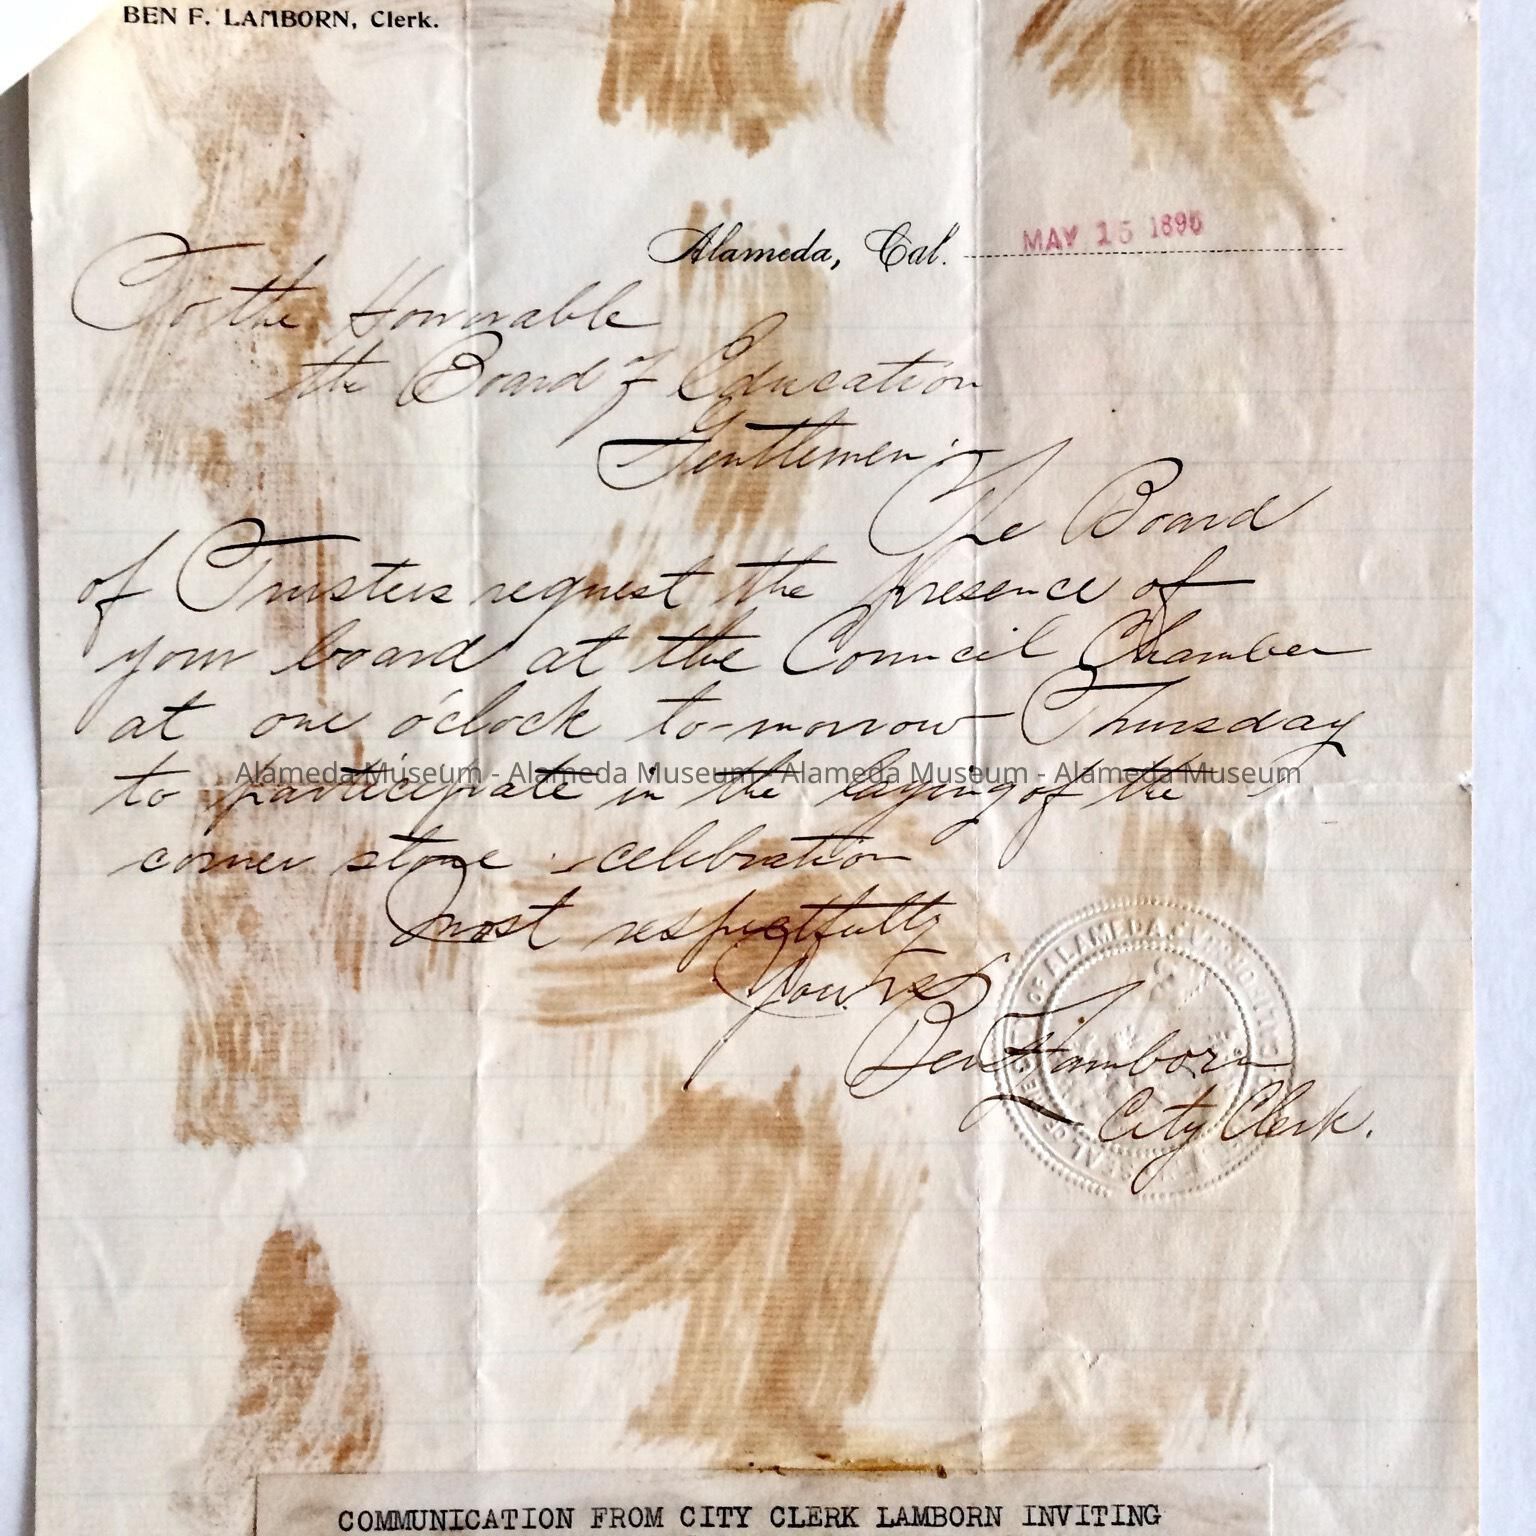 BEN F. LAMBORN, Clerk.
Alameda, Cal. MAY 15 1895
To the Honorable
the Board of Education
Gentlemen:
The Board
of Trustees request the presence of
your board at the Council Chamber
at one o'clock to-morrow Thursday
to participate in the laying of the
Alameda Museum - Alameda Museum - Alameda Museum - Alameda Museum
corner stone celebration
Most respectfully
Yours
Ben F Lamborn
City Clerk.
OF ALAMEDA
SEAL OF
COMMUNICATION FROM CITY CLERK LAMBORN INVITING